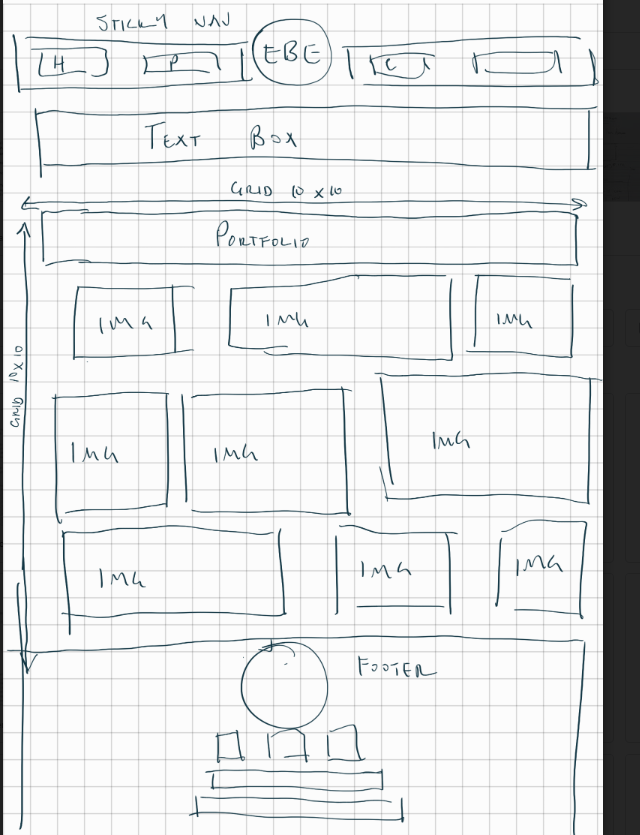 STICKY NAV
H P EBE C
TEXT BOX
GRID 10 X 10
PORTFOLIO
IMG IMG IMG
GRID 10 X 10
IMG IMG IMG
IMG IMG IMG
FOOTER